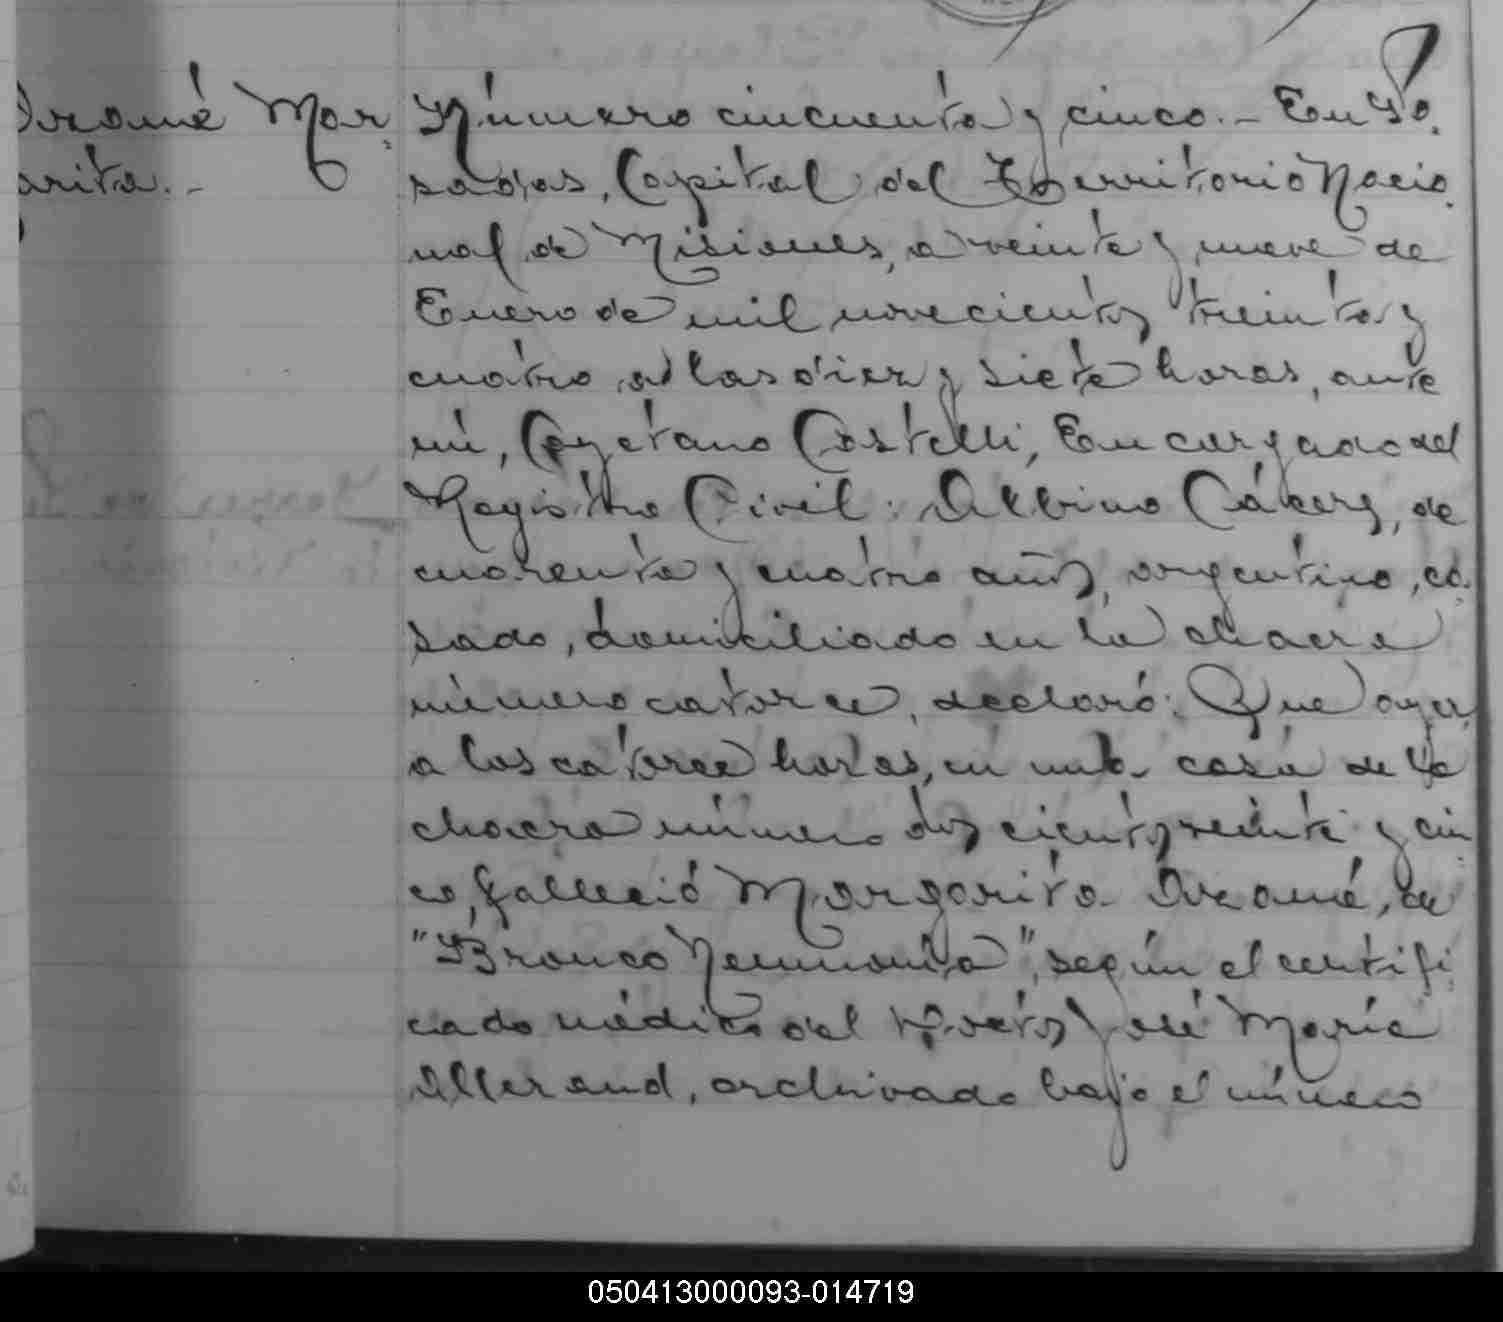 Oxomé Mar-
arita.-
Número cincuenta y cinco.- En Po-
sadas, Capital del Territorio Nacio-
nal de Misiones, a veinte y nueve de
Enero de mil novecientos treinta y
cuatro, a las diez y siete horas, ante
mí, Cayetano Castelli, Encargado del
Registro Civil: Albino Cáceres, de
cuarenta y cuatro años, argentino, ca-
sado, domiciliado en la chacra
número catorce, declaró: Que ayer,
a las catorce horas, en una casa de la
chacra número dos cientos veinte y cin-
co, falleció Margarita de
"Bronco Neumonía", según el certifi-
cado médico del José María
Allerand, archivado bajo el número
050413000093-014719